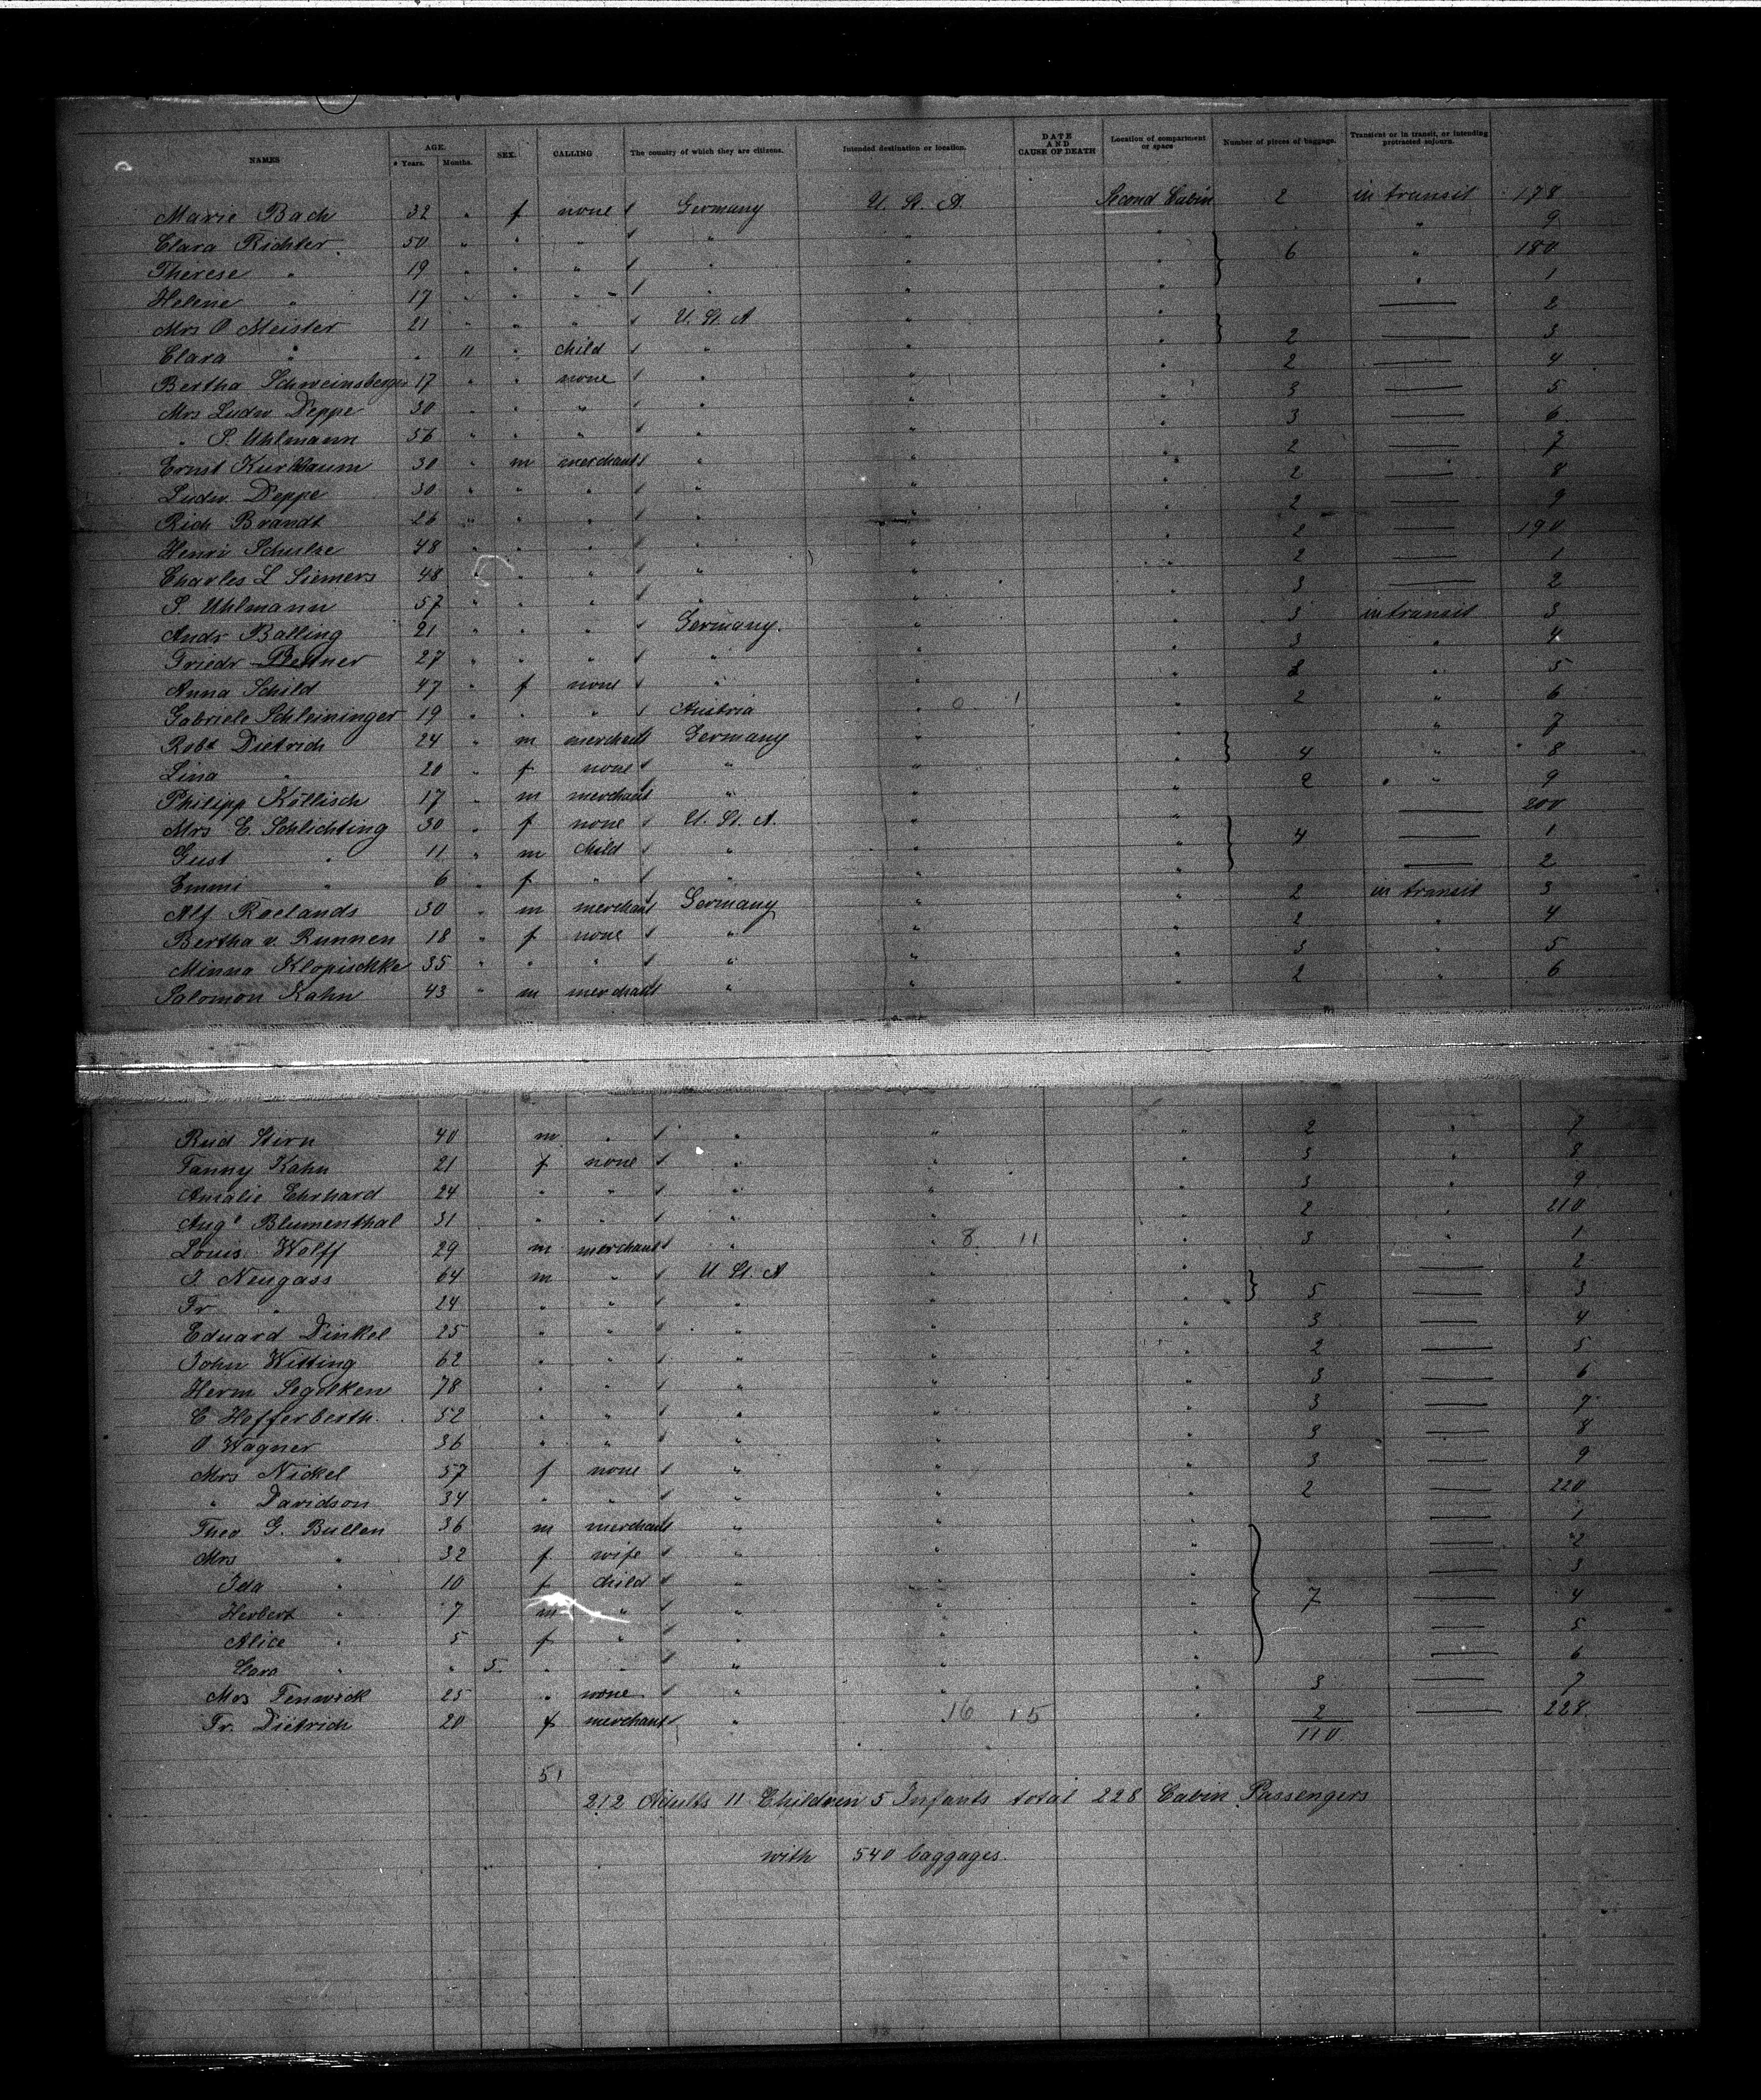 NAMES AGE. Years. Months. SEX. CALLING The country of which they are citizens. Intended destination or location. DATE AND CAUSE OF DEATH Location of compartment or space Number of pieces of baggage. Transient or in transit, or intending protracted sojourn.
Marie Bach 32 " f none Germany U. St. A. Second Cabin 2 in transit 178
Clara Richter 50 " " " " " " " 9
Therese " 19 " " " " " " 6 " 180
Helene " 17 " " " " " " " 1
Mrs O Meister 21 " " " U. St. A " " — 2
Clara " " 11 " child " " " 2 — 3
Bertha Schweinsberger 17 " " none " " " 2 — 4
Mrs Ludw Deppe 30 " " " " " " 3 — 5
" S. Uhlmann 56 " " " " " " 3 — 6
Ernst Kurlbaum 30 " m merchant " " " 2 — 7
Ludw. Deppe 30 " " " " " " 2 — 8
Rich Brandt 26 " " " " " " 2 — 9
Henri Schulze 48 " " " " " " 2 — 190
Charles L Siemers 48 " " " " " " 2 — 1
S. Uhlmann 57 " " " " " " 3 — 2
Andr Balling 21 " " " Germany. " " 3 in transit 3
Friedr 27 " " " " " " 3 " 4
Anna Schild 47 " f none " " " " 5
Gabriele Schleininger 19 " " " Austria " 0 1 " 2 " 6
Robt Dietrich 24 " m merchant Germany " " " 7
Lina " 20 " f none " " " 4 " 8
Philipp Köllisch 17 " m merchant " " " 2 " 9
Mrs E. Schlichting 30 " f none U. St. A. " " — 200
Gust " 11 " m child " " " 4 — 1
Emmi " 6 " f " " " " — 2
Alf Roelands 30 " m merchant Germany " " 2 in transit 3
Bertha v. Runnen 18 " f none " " " 2 " 4
Minna Klopischke 35 " " " " " " 3 " 5
Salomon Kahn 43 " m merchant " " " 2 " 6
Rud Stern 40 m " " " " 2 " 7
Fanny Kahn 21 f none " " " 3 " 8
Amalie Ehrhard 24 " " " " " 3 " 9
Auge Blumenthal 31 " " " " " 2 " 210
Louis Wolff 29 m merchant " " 8 11 " 3 " 1
J. Neugass 64 m " U St. A " " — 2
Fr " 24 " " " " " 5 — 3
Eduard Dinkel 25 " " " " " 3 — 4
John Witting 62 " " " " " 2 — 5
Herm Segelken 78 " " " " " 3 — 6
C Hofferberth. 52 " " " " " 3 — 7
O Wagner 36 " " " " " 3 — 8
Mrs Nickel 57 f none " " " 3 — 9
" Davidson 34 " " " " " 2 — 220
Theo G. Bullen 36 m merchant " " " — 1
Mrs " 32 f wife " " " — 2
Ida " 10 f child " " " — 3
Herbert " 7 m " " " " 7 — 4
Alice " 5 f " " " " — 5
Clara " " 5 " " " " " — 6
Mrs Fenwick 25 " none " " " 3 — 7
Fr. Dietrich 20 f merchant " " 16 15 " 2 — 228
110
51
212 Adults 11 Children 5 Infants total 228 Cabin Passengers
with 540 baggages.